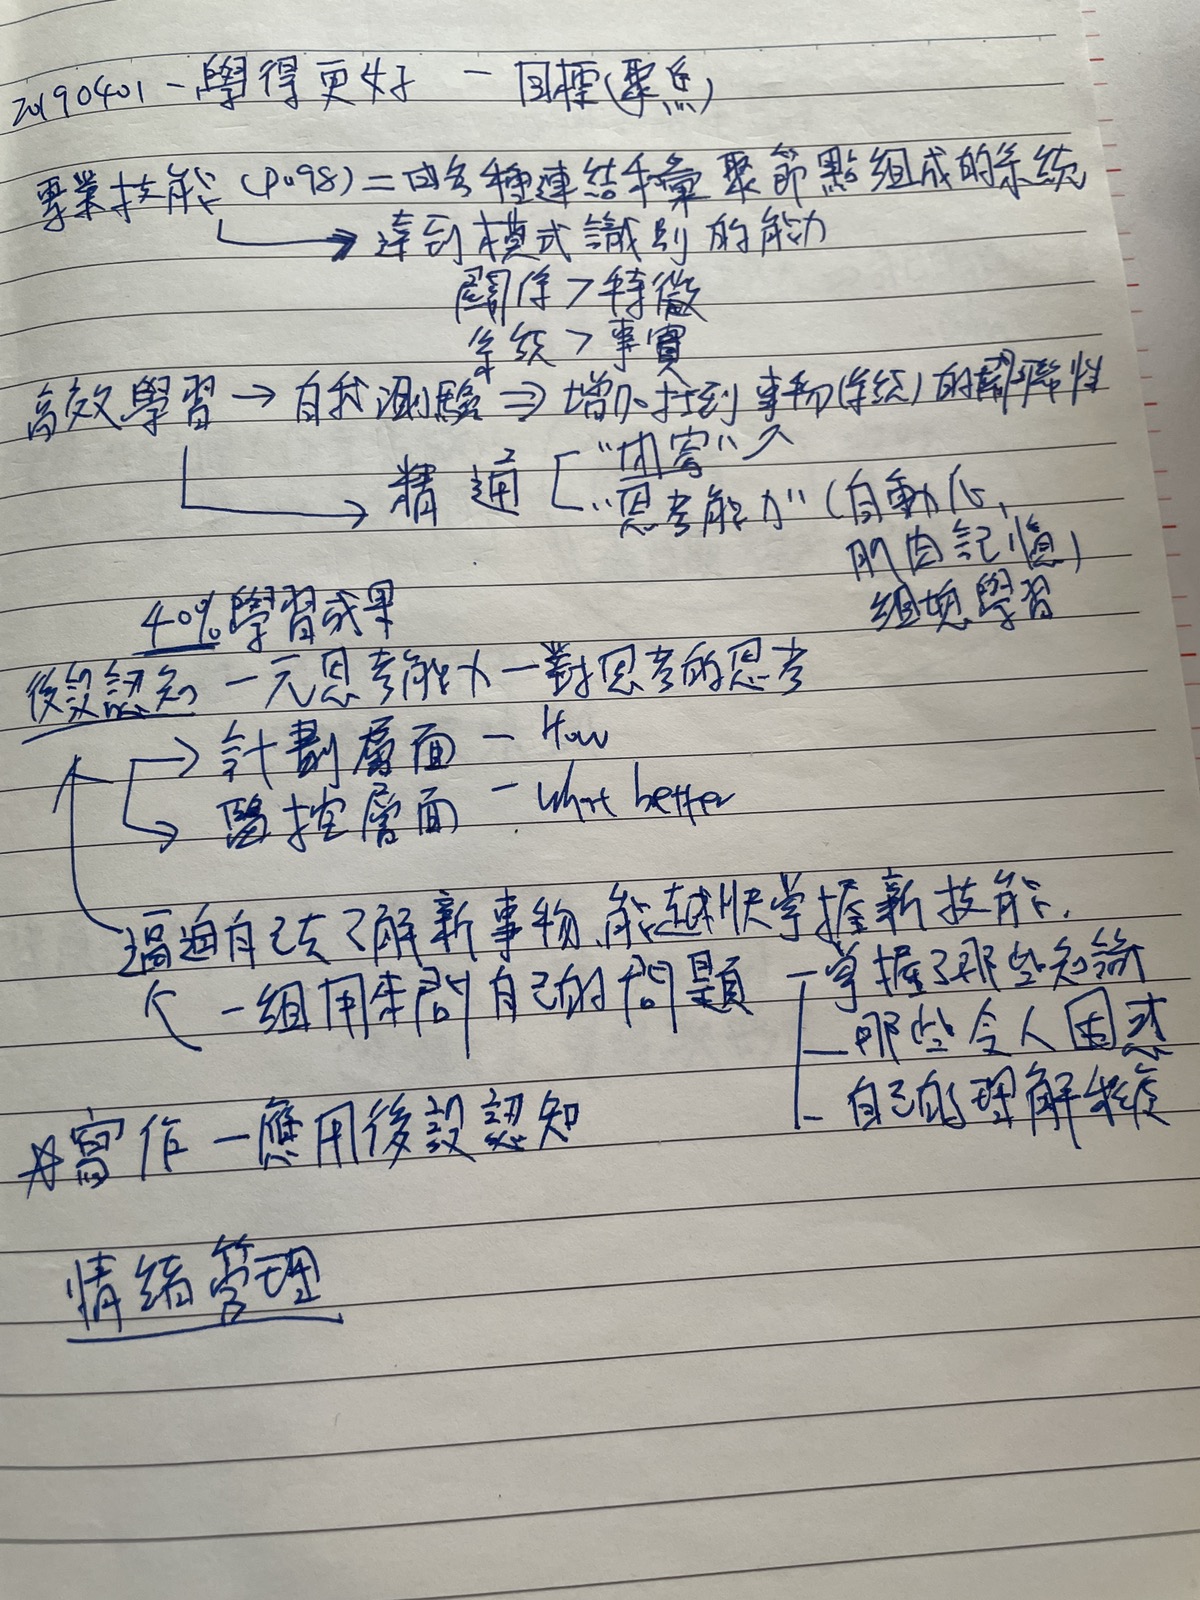 20190401 - 學得更好 - 目標(聚焦)
專業技能 (P.098) = 由各種連結和彙聚節點組成的系統
達到模式識別的能力
關係 > 特徵
系統 > 事實
高效學習 → 自我測驗 ⇒ 增加找到事物(系統)的關聯性
精通 "內容"
"思考能力" (自動化,
肌肉記憶)
組塊學習
40%學習成果
後設認知 - 元思考能力 - 對思考的思考
計劃層面 - How
監控層面 - What better
逼迫自己去了解新事物,能越快掌握新技能.
一組用來問自己的問題 - 掌握了那些知識
- 那些令人困惑
- 自己的理解程度
寫作 - 應用後設認知
情緒管理